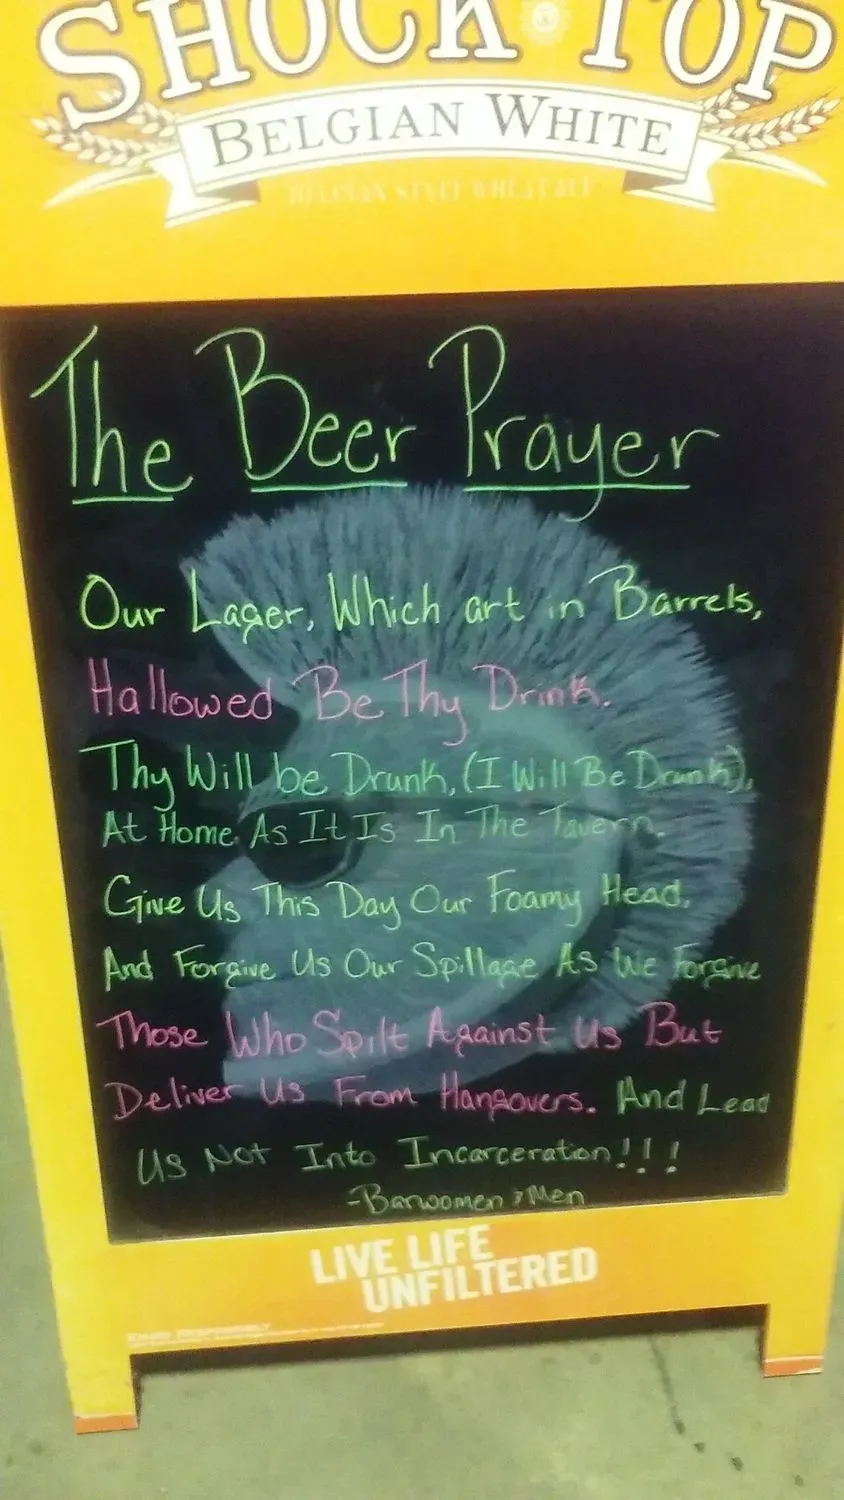 SHOCK TOP
BELGIAN WHITE
BELGIAN STYLE WHEAT ALE
The Beer Prayer
Our Lager, Which art in Barrels,
Hallowed Be Thy Drink.
Thy Will be Drunk, (I Will Be Drunk),
At Home As It Is In The Tavern.
Give Us This Day Our Foamy Head,
And Forgive Us Our Spillage As We Forgive
Those Who Spilt Against Us But
Deliver Us From Hangovers. And Lead
Us Not Into Incarceration!!!
-Barwomen & Men
LIVE LIFE
UNFILTERED